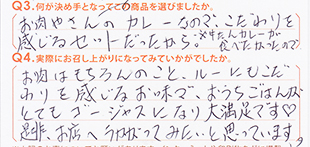 Q3. 何が決め手となってこの商品を選びましたか。
お肉やさんのカレーなので、こだわりを
感じるセットだったから。※牛たんカレーが
食べたかったので
Q4. 実際にお召し上がりになってみていかがでしたか。
お肉はもちろんのこと、ルーにもこだ
わりを感じるお味で、おうちごはんが
とてもゴージャスになり大満足です♡
是非、お店へうかがってみたいと思っています